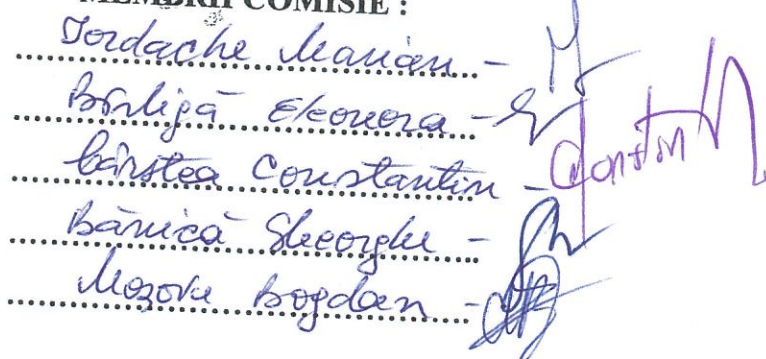 MEMBRII COMISIE :
Iordache Marian -
Bîrligă Eleonora -
Cârstea Constantin - Constin
Bănică Gheorghe -
Mozoru Bogdan -